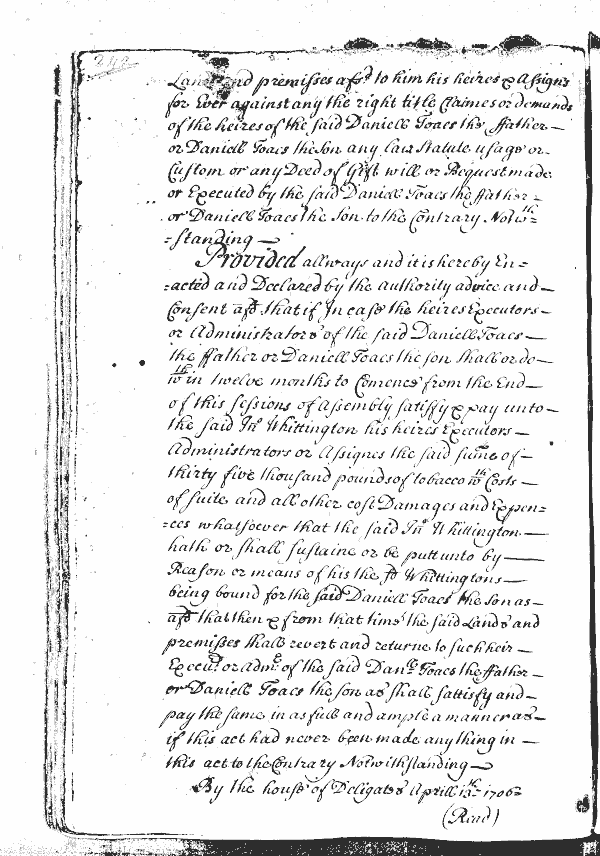 242
Land and premisses afsd to him his heires & Assigns
for Ever against any the right title Claimes or demands
of the heires of the said Daniell Toaes the ffather —
or Daniell Toaes the Son any law Statute usage or
Custom or any Deed of Gift will or Request made
or Executed by the said Daniell Toaes the ffather -
or Daniell Toaes the Son to the Contrary Notwth=
=standing —
Provided allways and it is hereby En=
=acted and Declared by the Authority advice and —
Consent afsd that if In case the heires Executors -
or Administrators of the said Daniell Toaes —
the ffather or Daniell Toaes the son shall or do —
wth in twelve months to Comence from the End —
of this sessions of Assembly satisfy & pay unto —
the said Jno Whittington his heires Executors —
Administrators or Assignes the said sume of —
thirty five thousand pounds of tobacco wth Costs —
of suite and all other cost Damages and Expen=
=ces whatsoever that the said Jno Whittington
hath or shall sustaine or be putt unto by —
Reason or means of his the sd Whittingtons —
being bound for the said Daniell Toaes the son as —
afsd that then & from that time the said Lands and
premisses shall revert and returne to such heir —
Execurs or admrs of the said Danll Toaes the ffather —
or Daniell Toaes the son as shall sattisfy and —
pay the same in as full and ample a manner as —
if this act had never been made any thing in —
this act to the Contrary Notwithstanding —
By the house of Deligates Aprill 13th 1706
(Read)